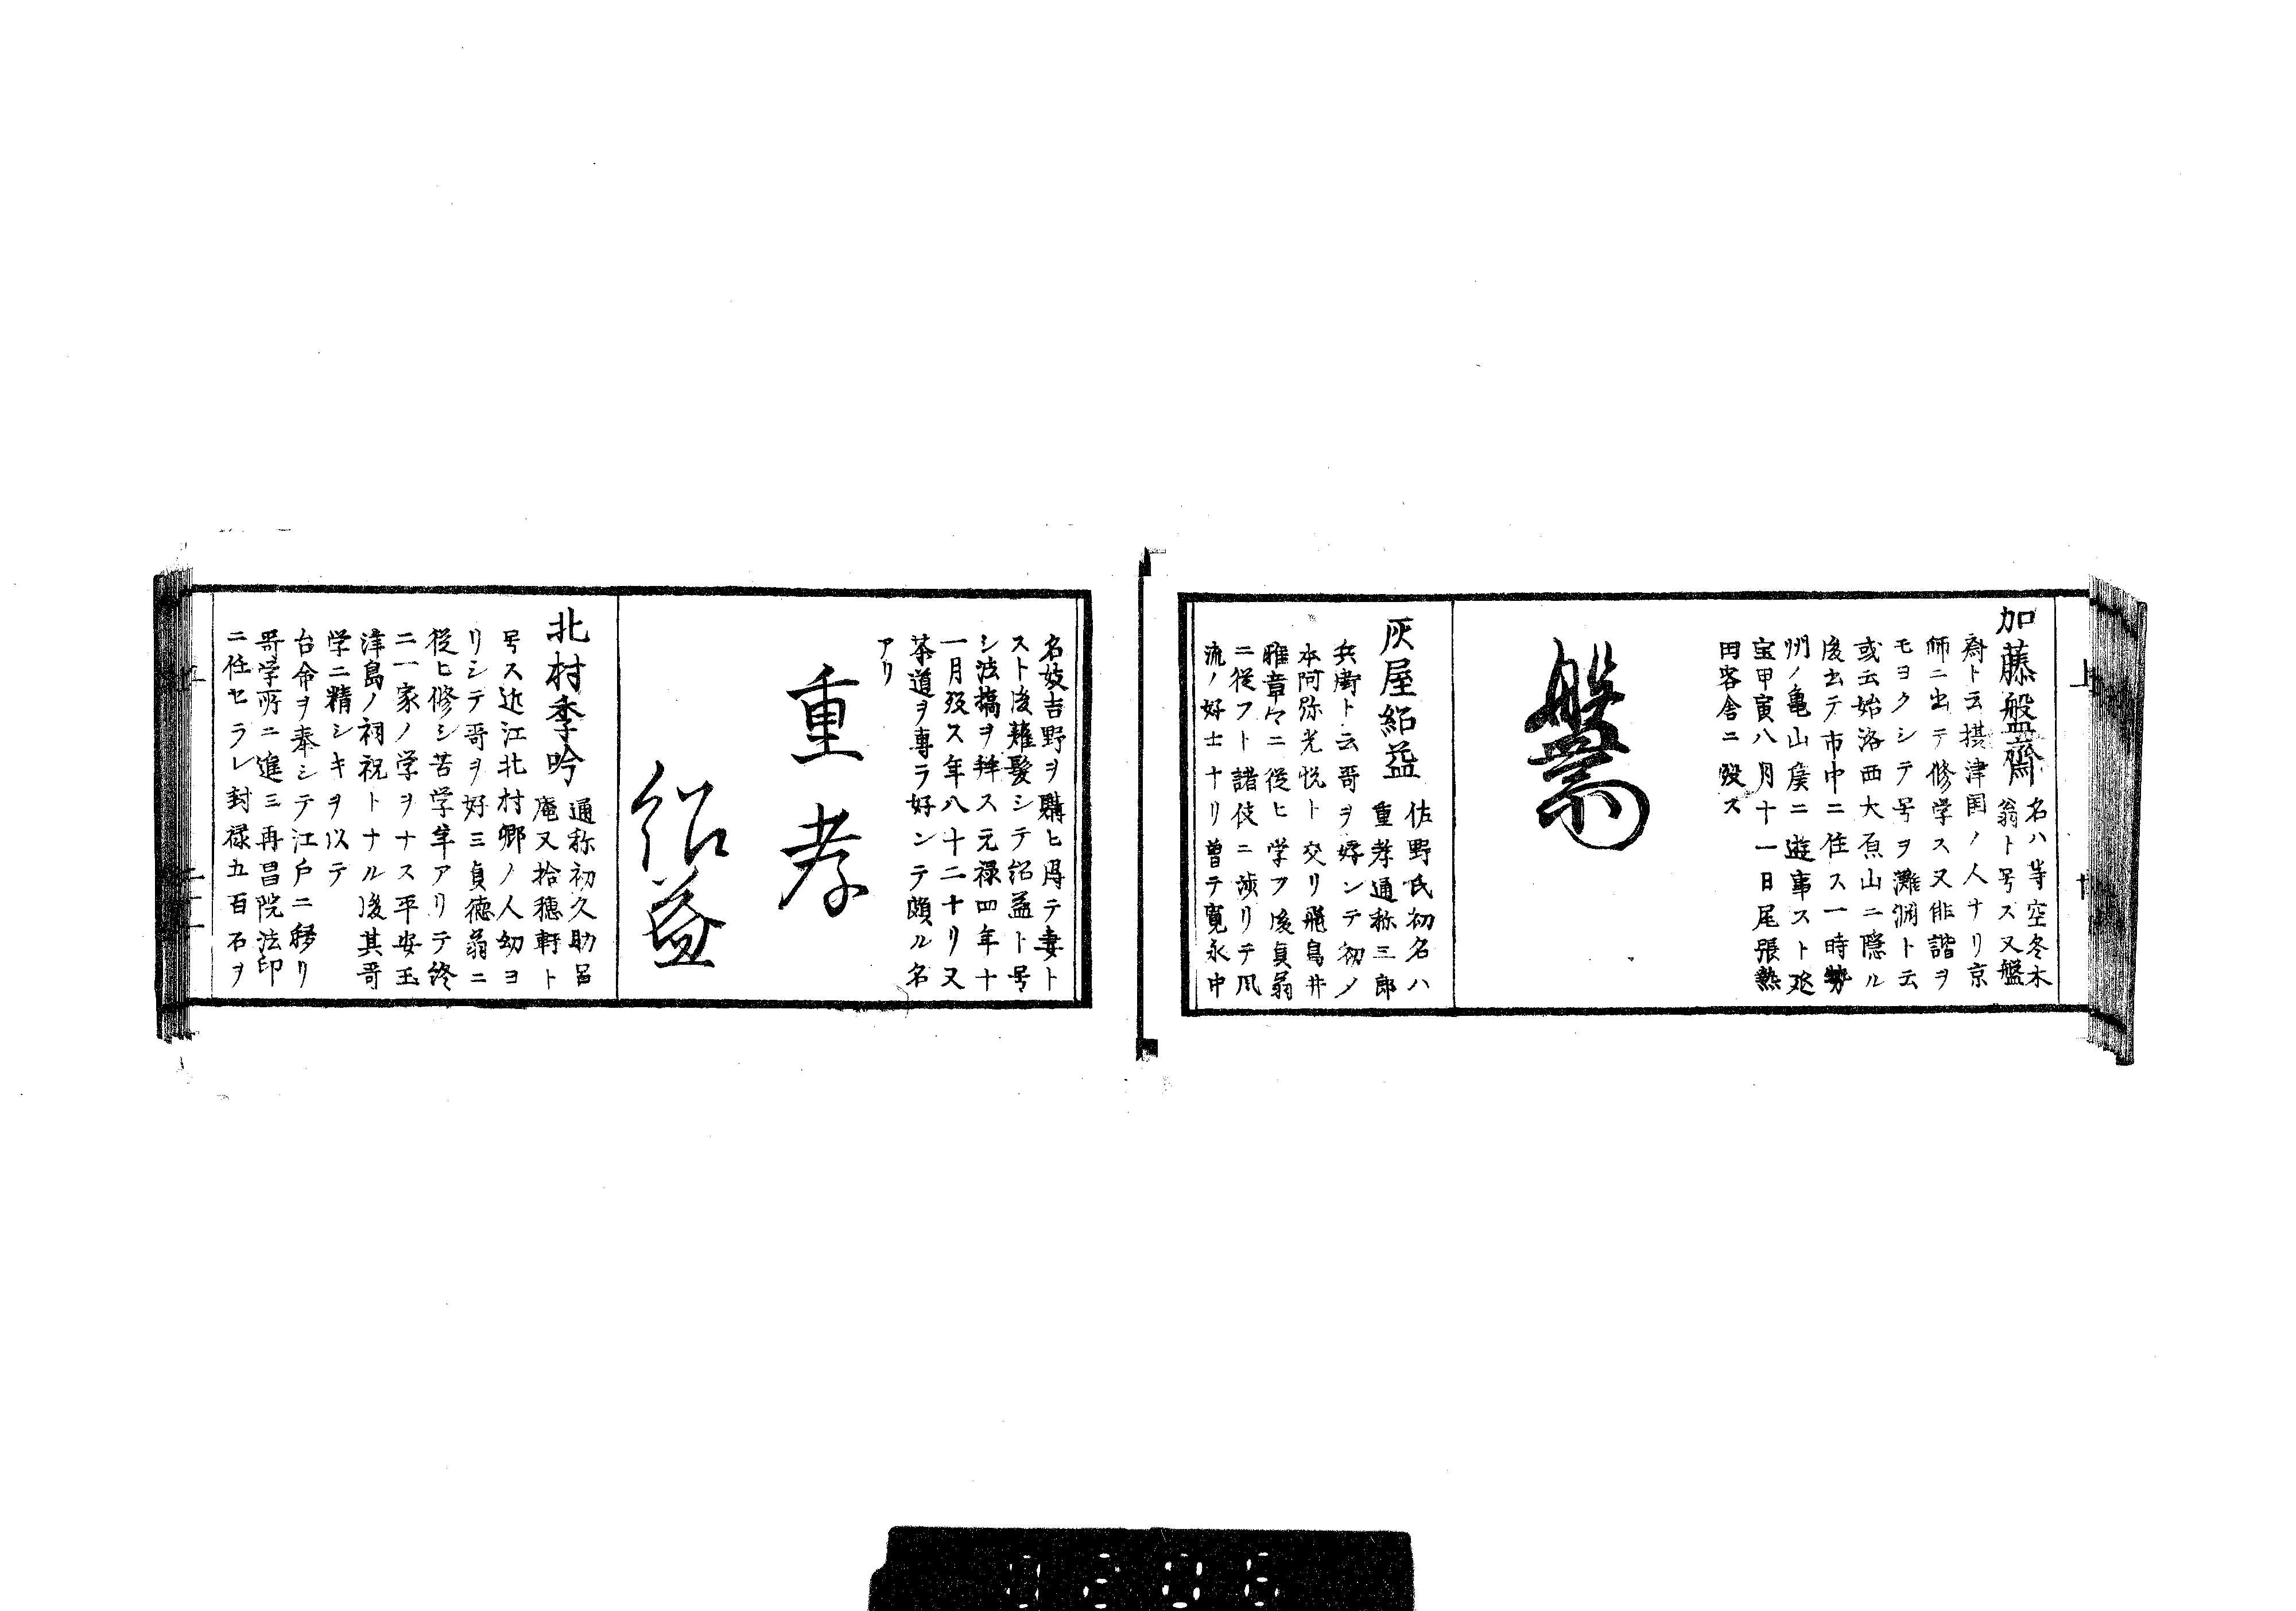 加藤盤齋
名ハ等空冬木
翁ト号ス又盤
斎ト云摂津国ノ人ナリ京
師ニ出テ修学ス又俳諧ヲ
モヨクシテ号ヲ灘渕ト云
或云始洛西大原山ニ隠ル
後出テ市中ニ住ス一時勢
州ノ亀山侯ニ遊事スト延
宝甲寅八月十一日尾張熱
田客舎ニ歿ス
灰屋紹益
佐野氏初名ハ
重孝通称三郎
兵衛ト云哥ヲ好ンテ初ノ
本阿弥光悦ト交リ飛鳥井
雅章々ニ従ヒ学フ後貞翁
ニ従フト諸伎ニ渉リテ風
流ノ好士ナリ曽テ寛永中
名妓吉野ヲ購ヒ得テ妻ト
スト後薙髪シテ紹益ト号
シ法橋ヲ拝ス元禄四年十
一月歿ス年八十二ナリ又
茶道ヲ專ラ好ンテ頗ル名
アリ
重孝
紹益
北村季吟
通称初久助呂
庵又拾穂軒ト
号ス近江北村郷ノ人幼ヨ
リシテ哥ヲ好三貞徳翁ニ
従ヒ修シ苦学年アリテ終
ニ一家ノ学ヲナス平安玉
津島ノ祠祝トナル後其哥
学ニ精シキヲ以テ
台命ヲ奉シテ江戸ニ移リ
哥学所ニ進三再昌院法印
ニ任セラレ封禄五百石ヲ